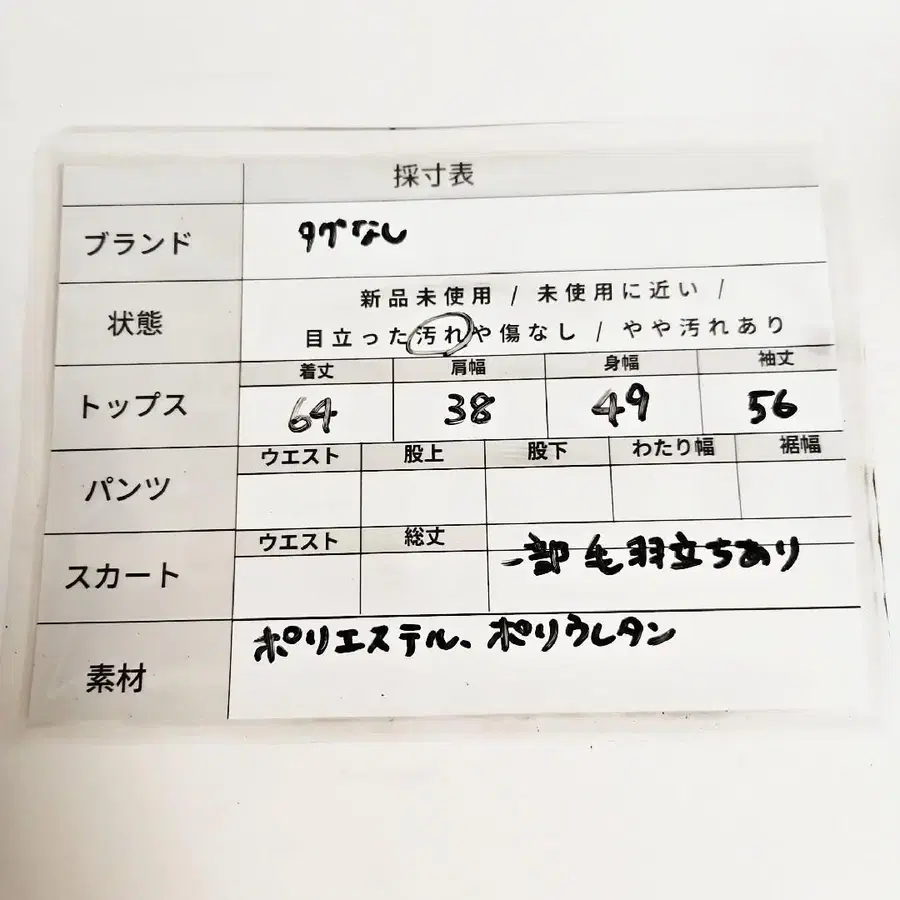 採寸表
ブランド タグなし
新品未使用 / 未使用に近い /
状態
目立った汚れや傷なし / やや汚れあり
着丈 肩幅 身幅 袖丈
トップス 64 38 49 56
ウエスト 股上 股下 わたり幅 裾幅
パンツ
ウエスト 総丈 一部毛羽立ちあり
スカート
ポリエステル、ポリウレタン
素材